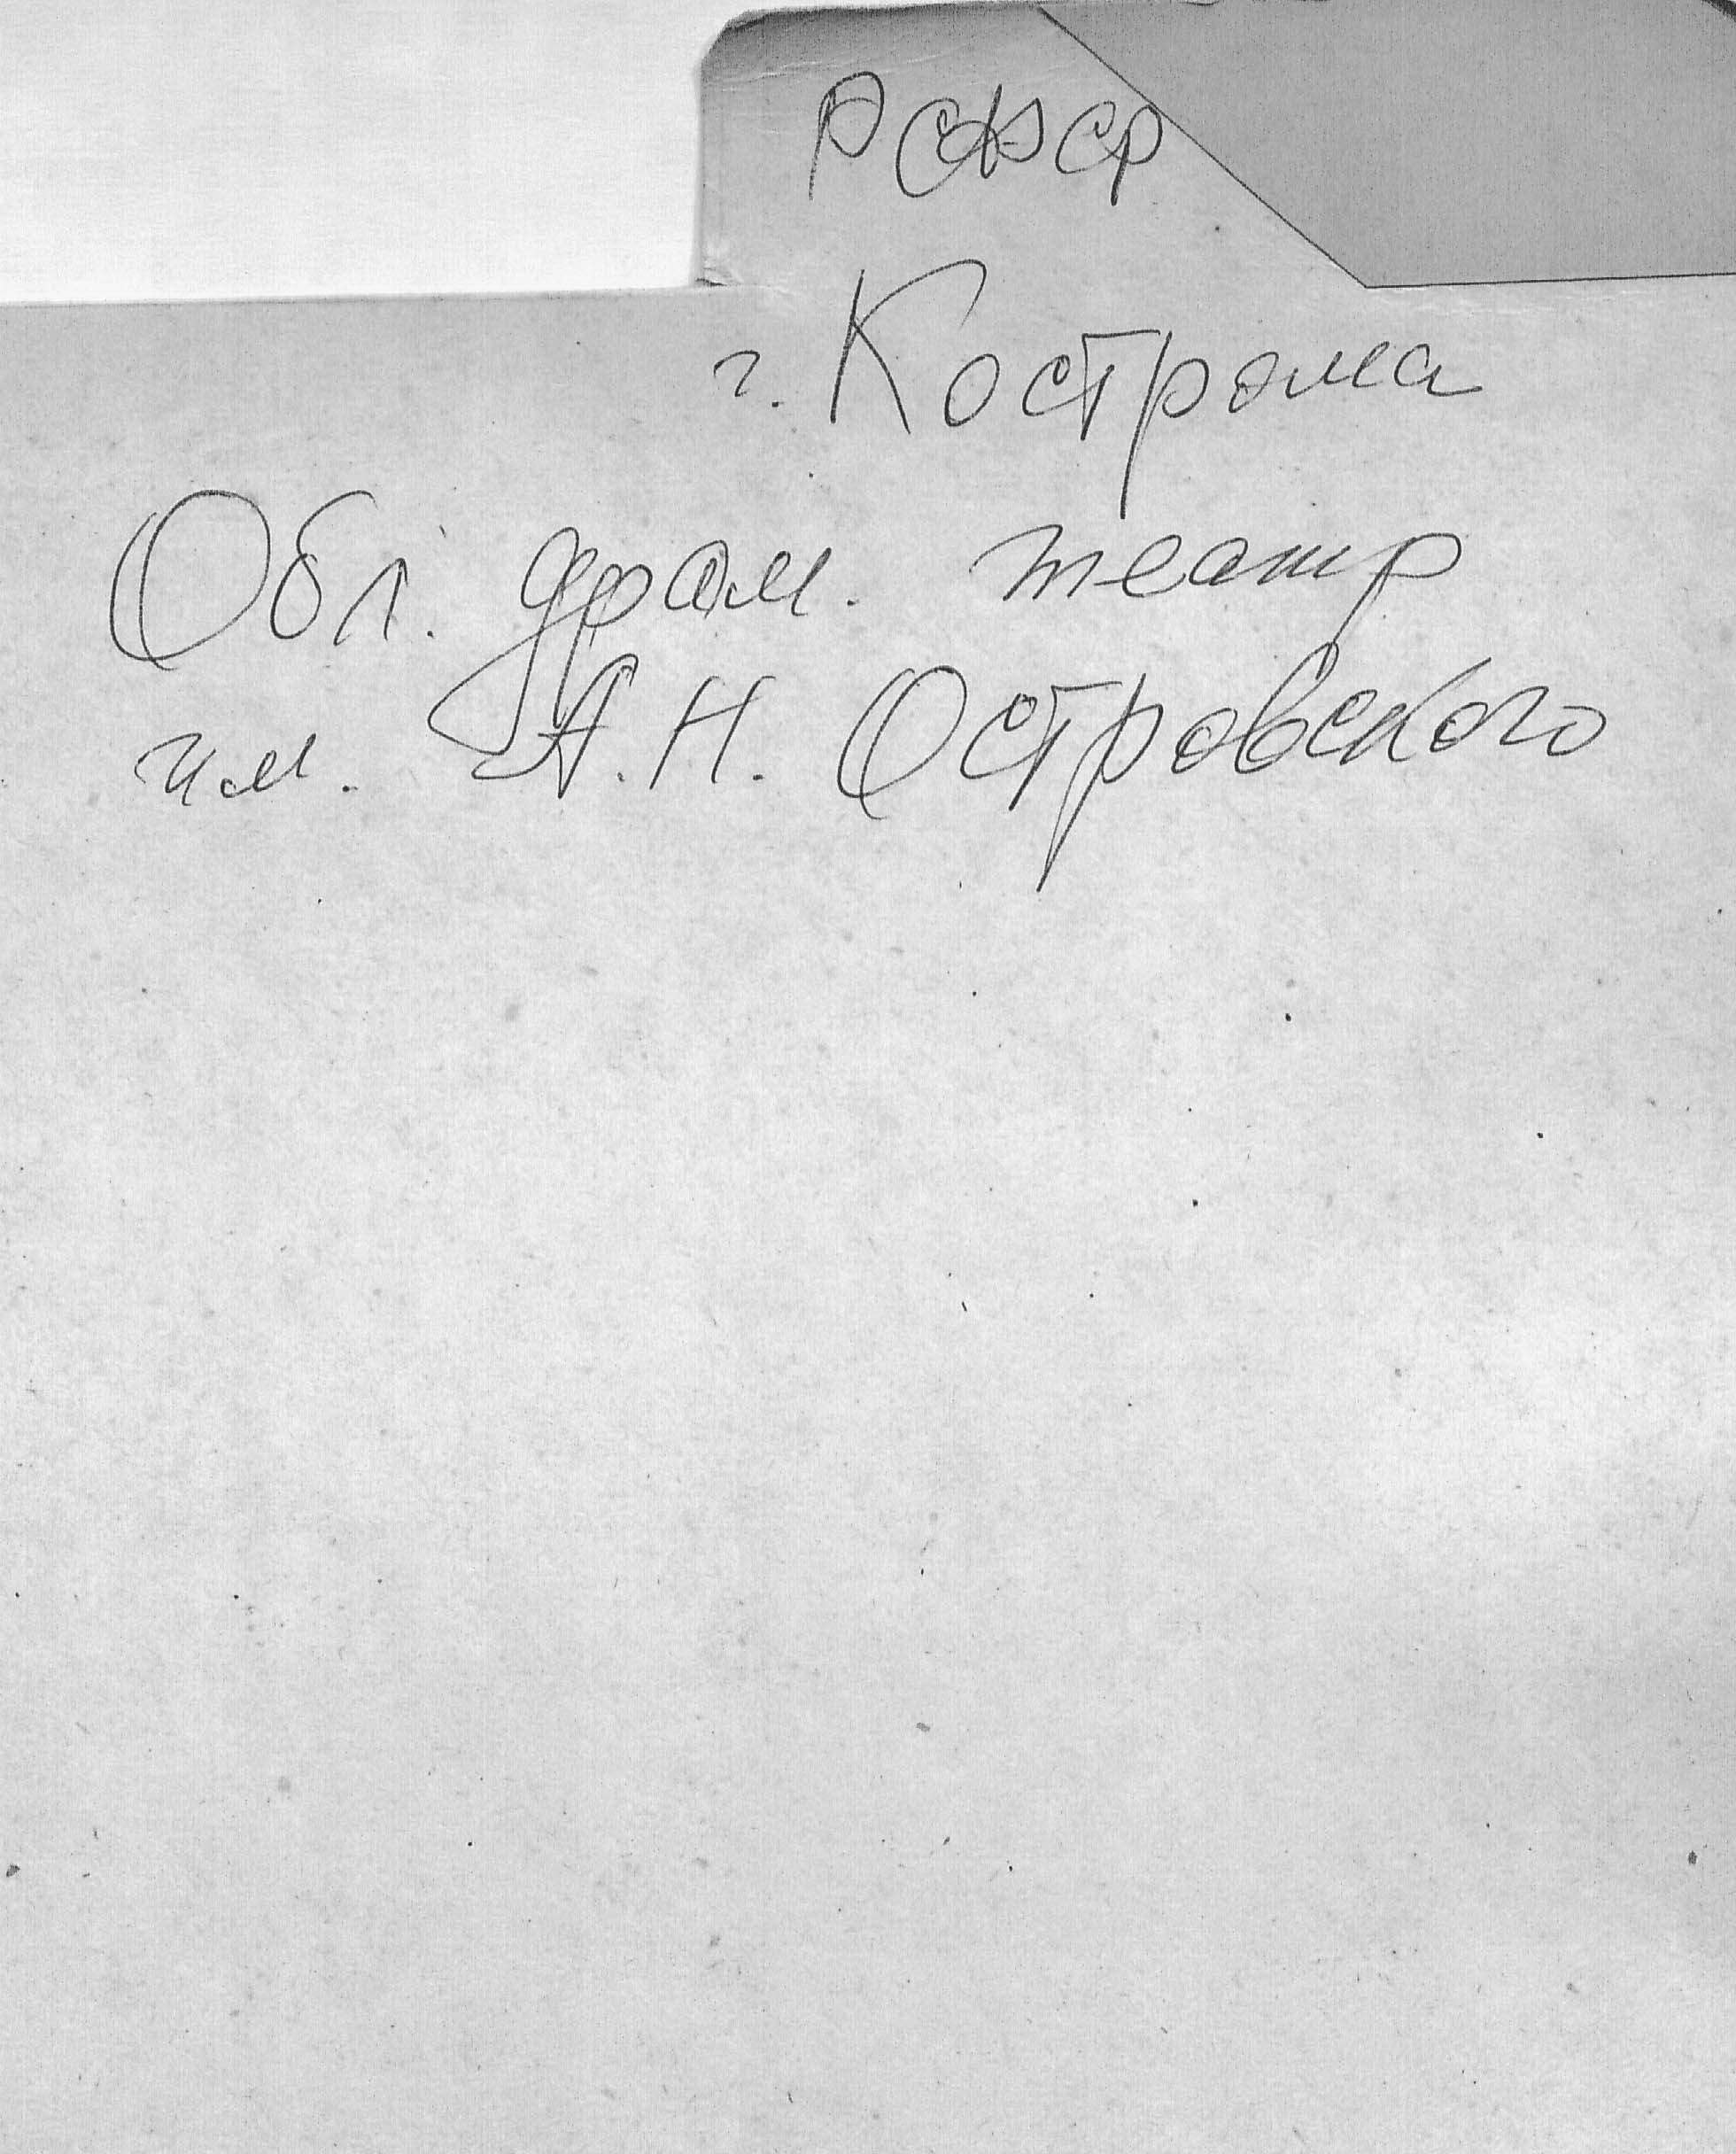 РСФСР
г. Кострома
Обл. драм. театр
им. А.Н. Островского